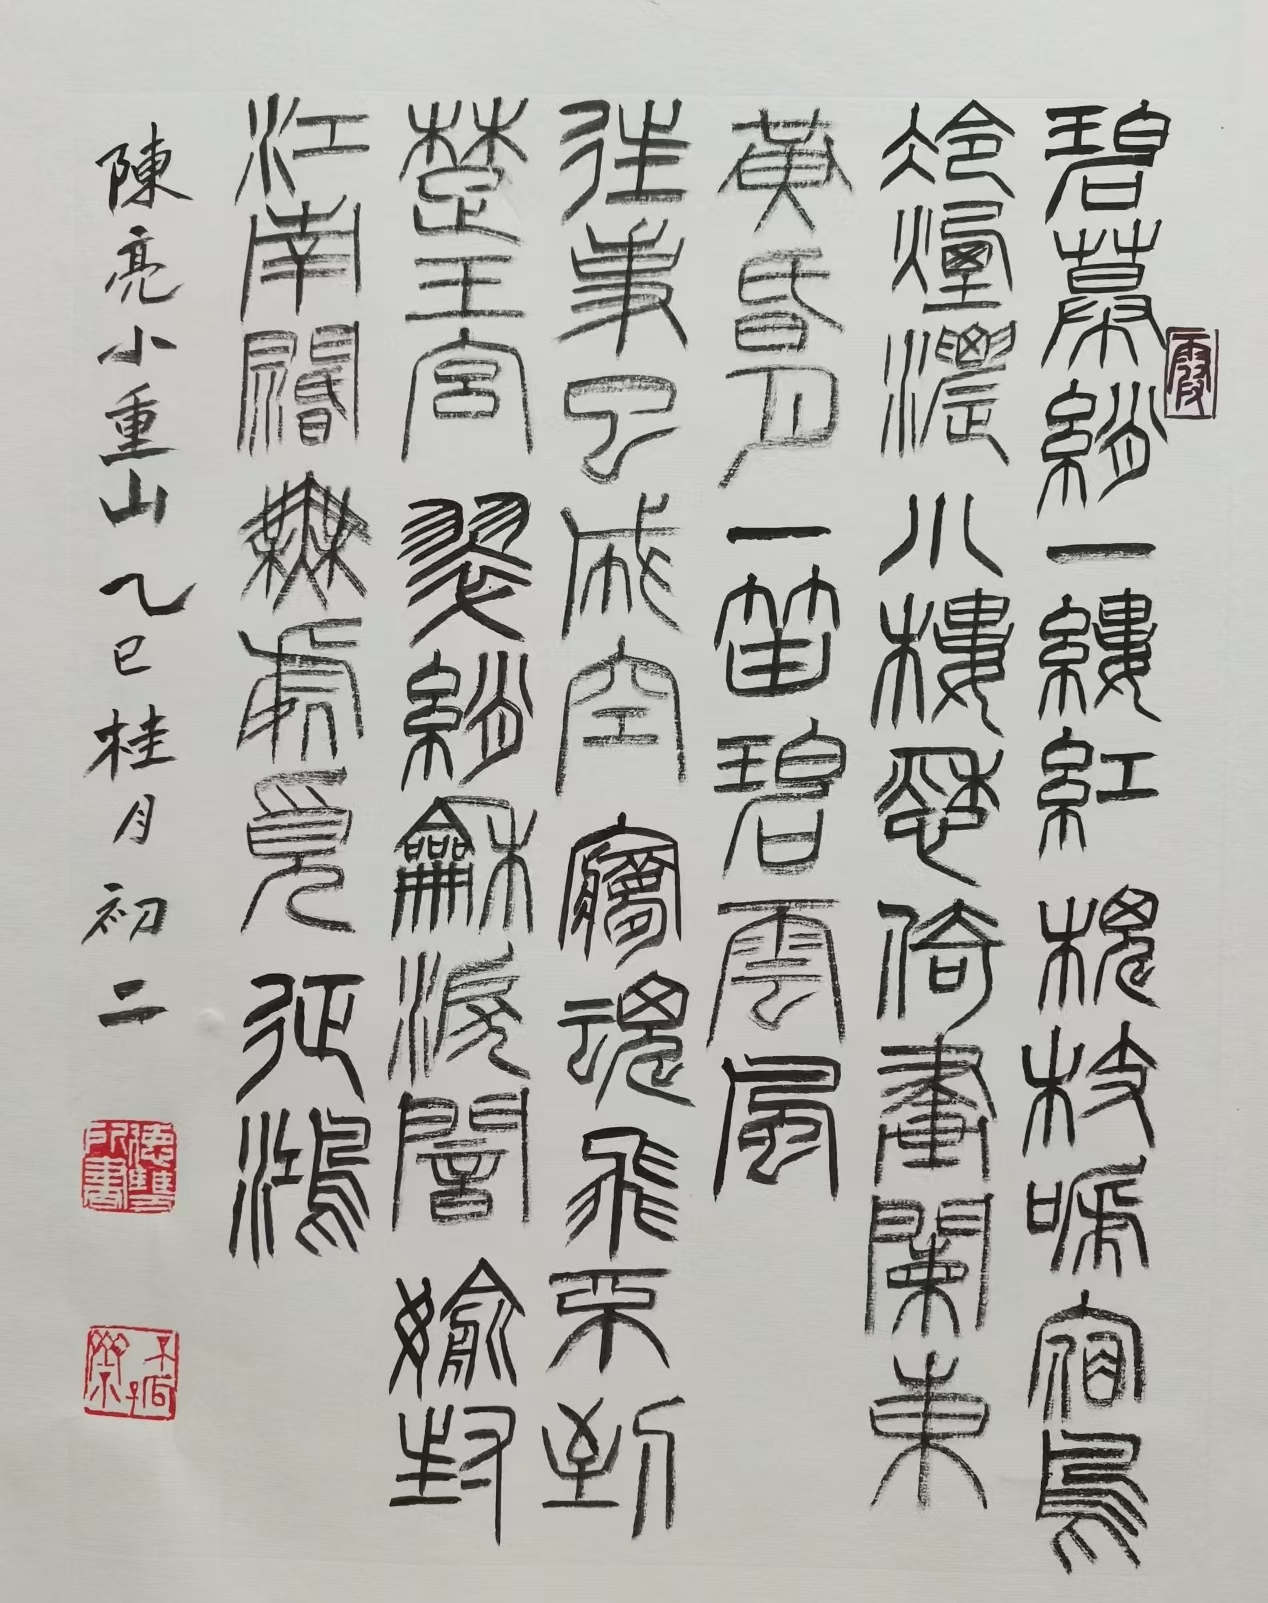 碧幕霞綃一縷紅槐枝啼宿鳥
冷煙濃小樓愁倚畫闌東
黃昏月一笛碧雲風
往事已成空夢魂飛不到
楚王宮翠綃龢淚闇媮封
江南闊無處覓征鴻
陳亮小重山乙巳桂月初二
德雙所書